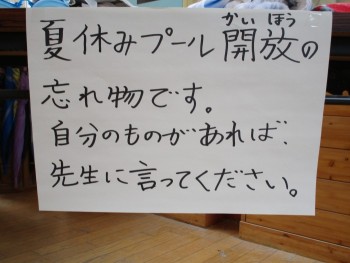 かい ほう
夏休みプール開放の
忘れ物です。
自分のものがあれば、
先生に言ってください。